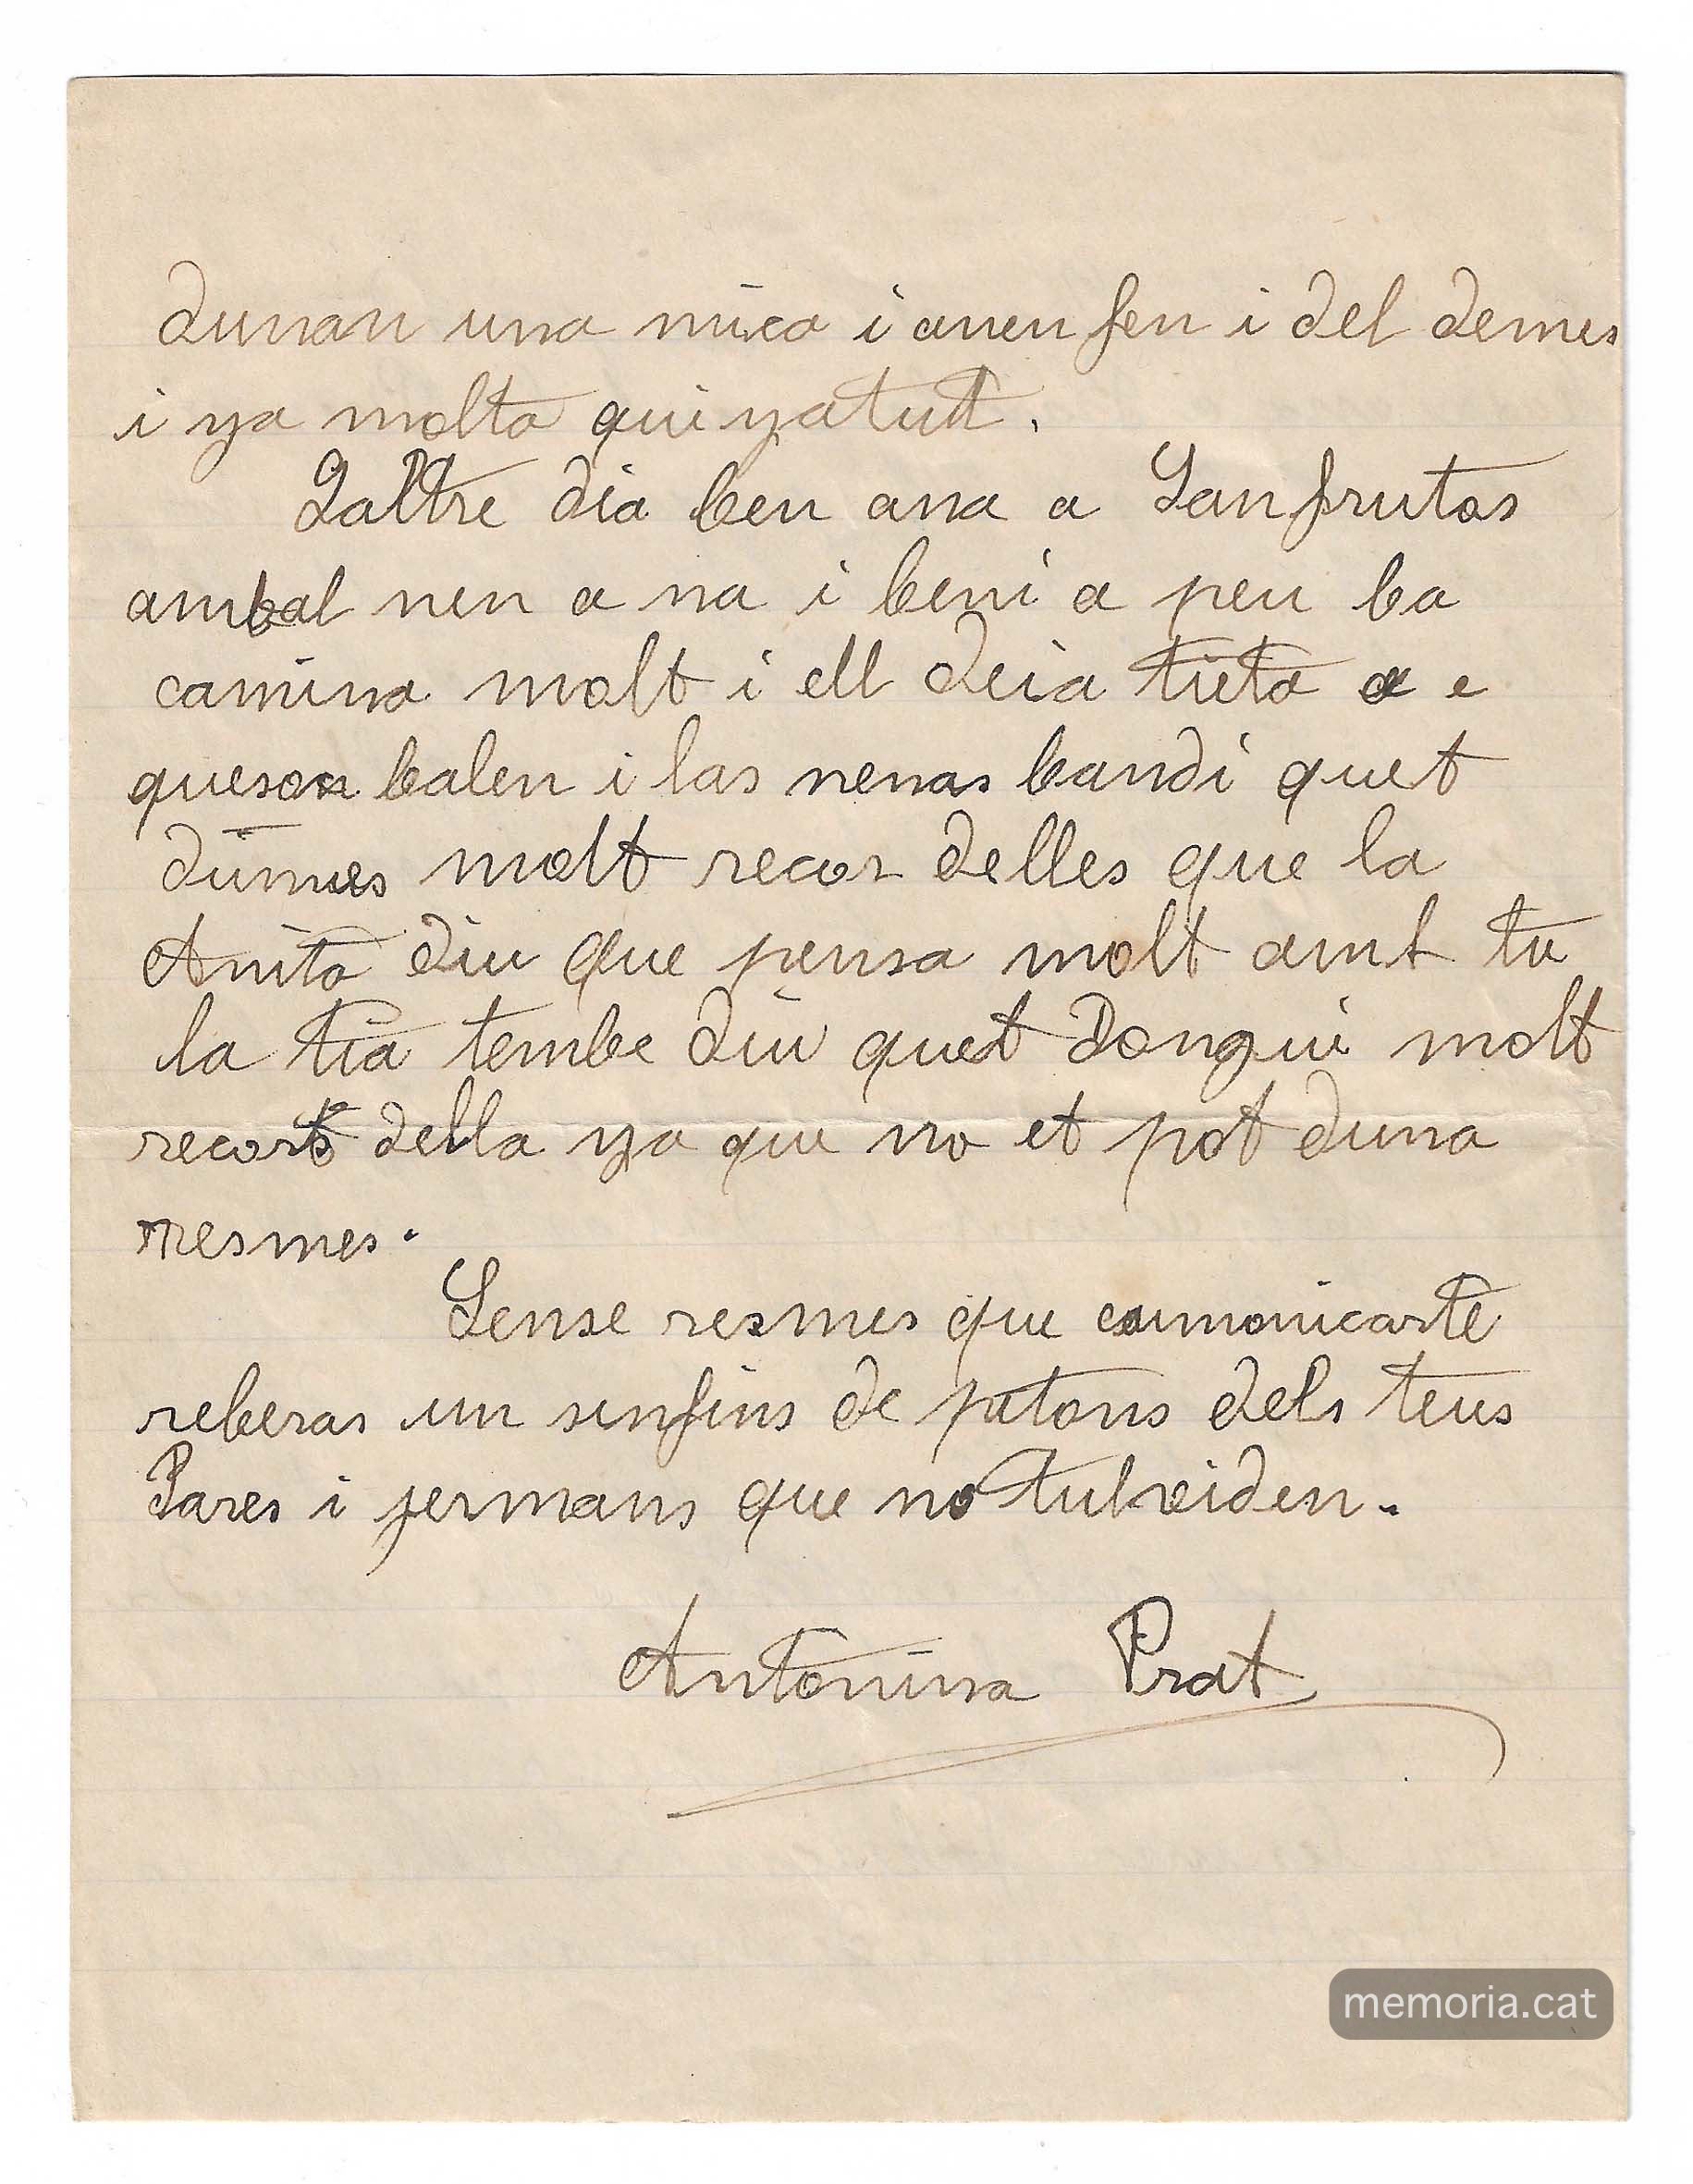 dunan una mica i anen fen i del demes
i ya molta qui yatut.
Laltre dia ben ana a Sanfrutos
ambal nen a na i beni a peu ba
camina molt i ell deia tieta a e
queson balen i las nenas bandi quet
dumes molt recor delles que la
Anita diu que pensa molt amt tu
la tia tembe diu quet dongui molt
recort della ya que no et pot duna
mesmes.
Sense resmes que cumonicarte
reberas un sinfins de patons dels teus
Pares i jermans que no tulviden.
Antonina Prat
memoria.cat